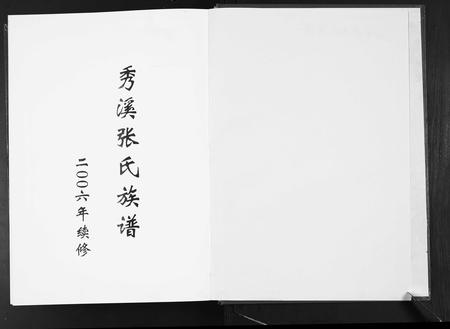 秀溪张氏族谱
二00六年续修